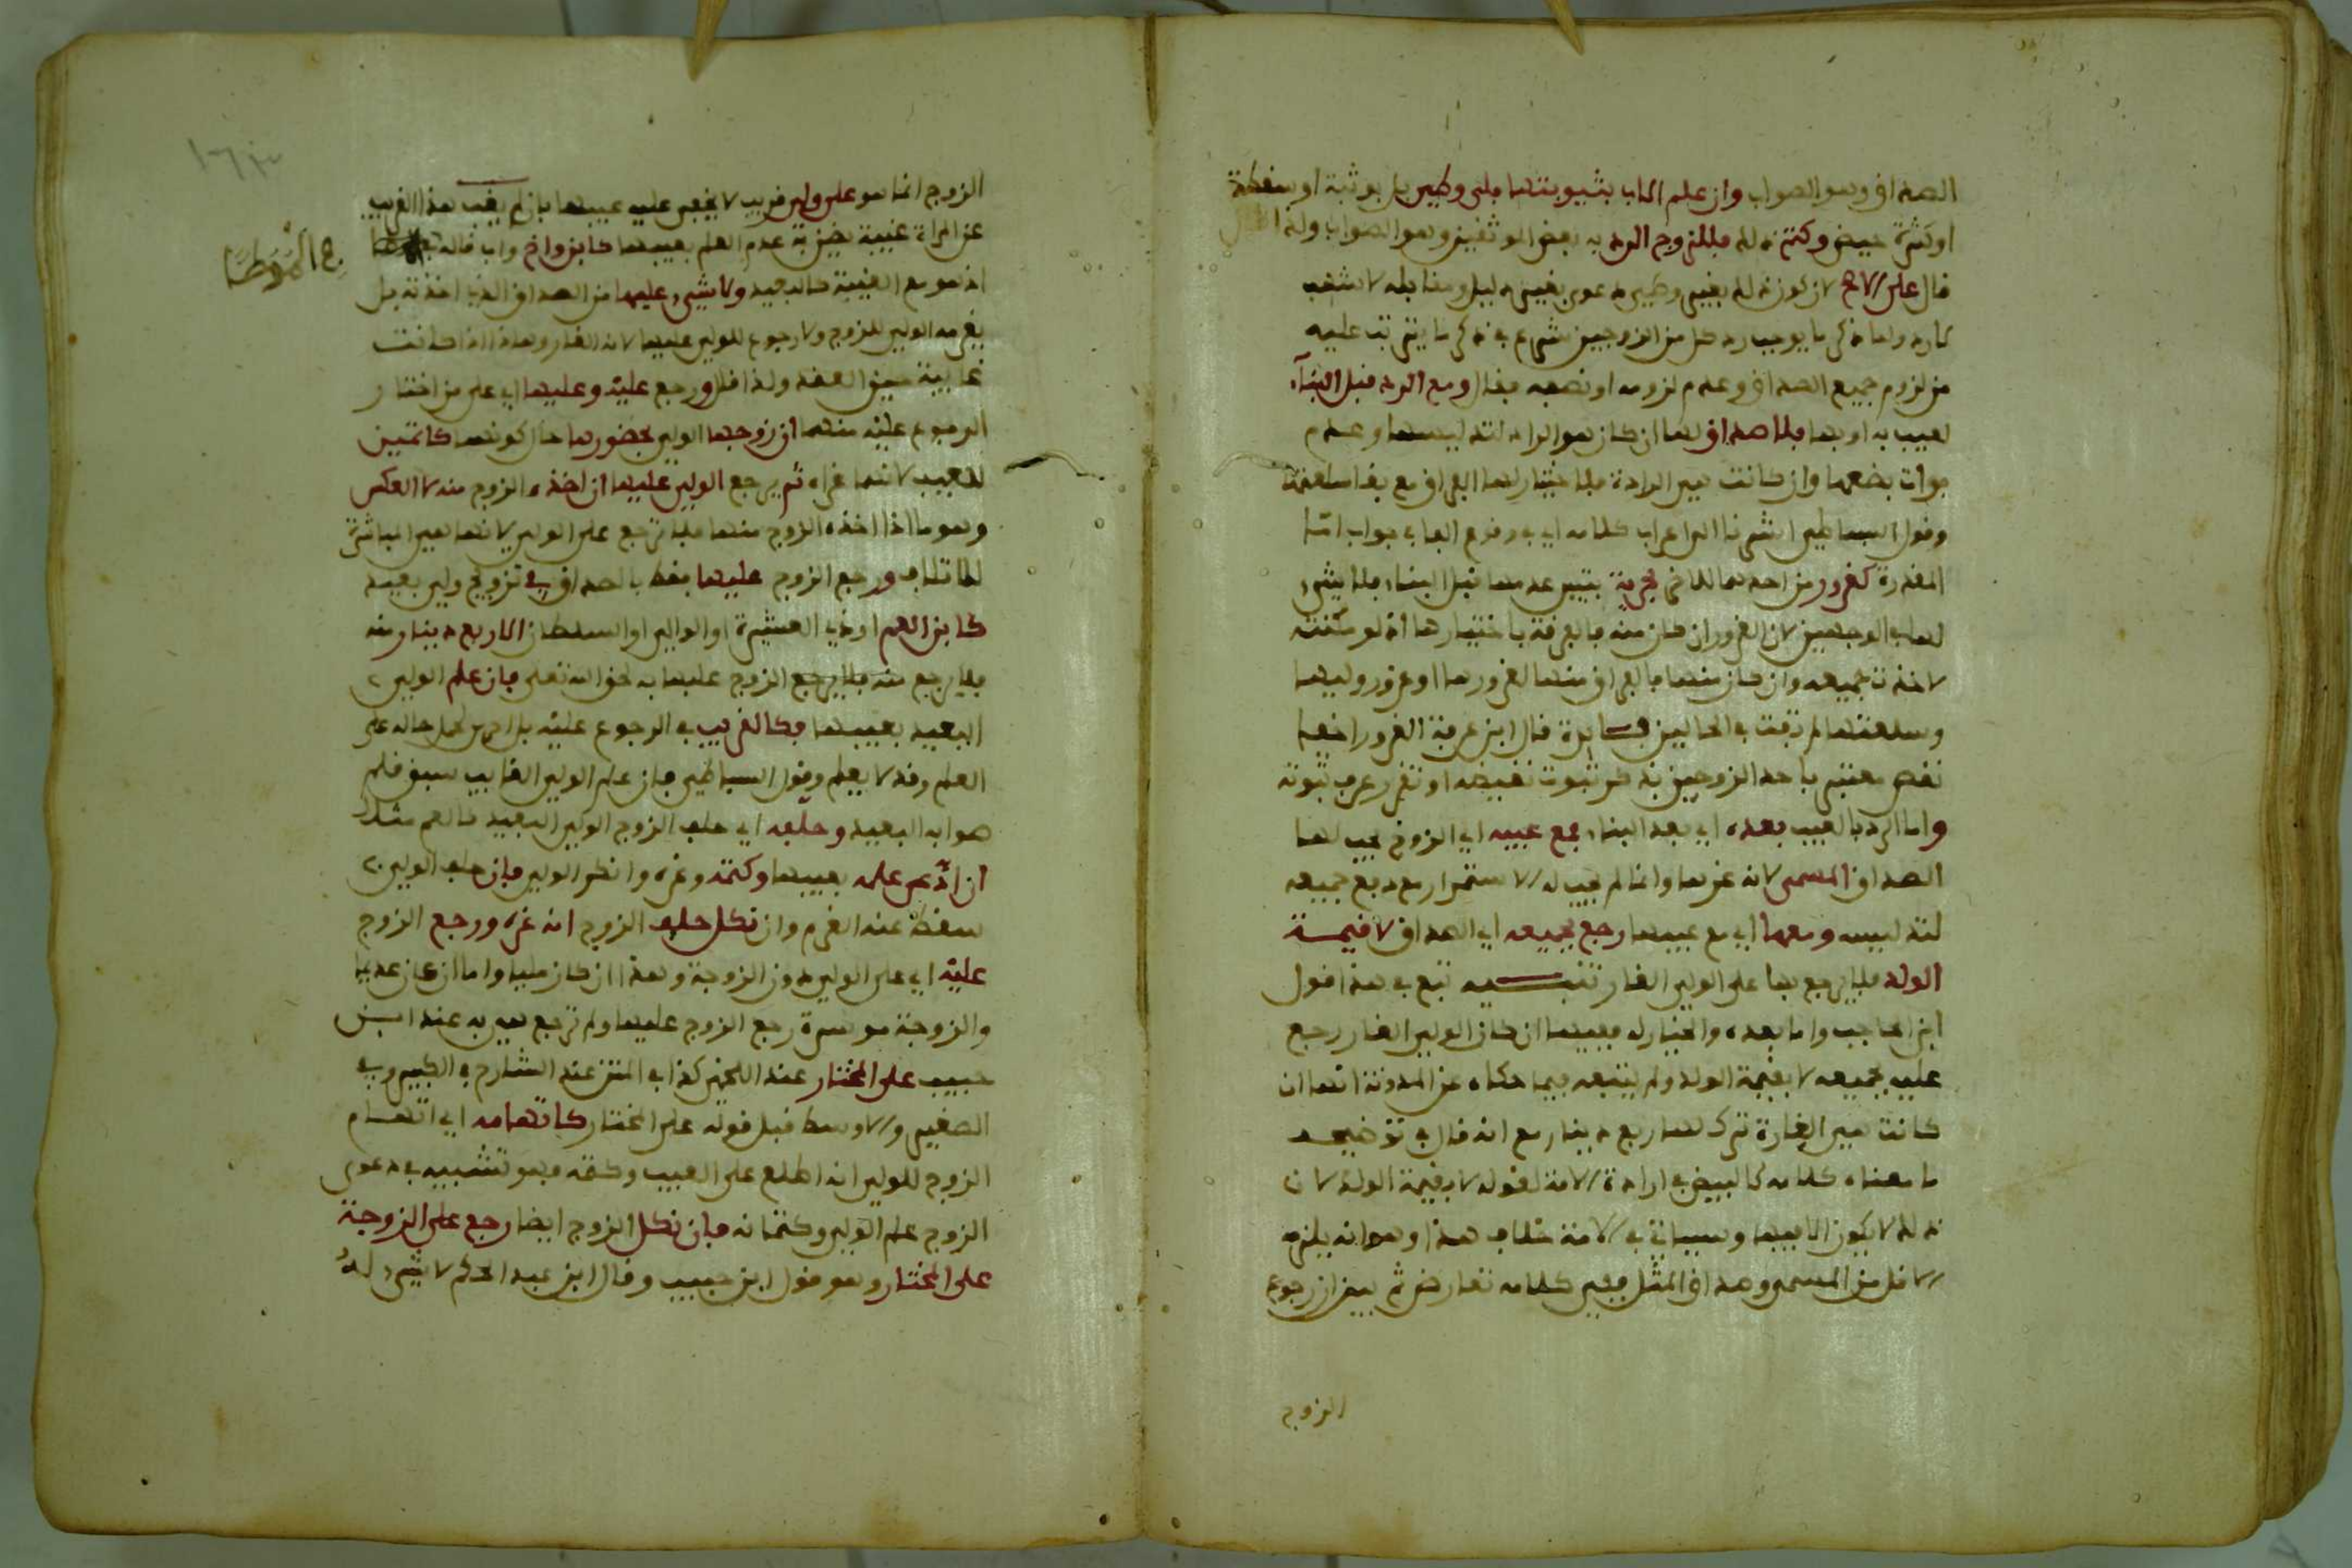 الصداق وهو الصواب وان علم الاب بثيوبتها بلا وطئ بل بوثبة او سقطة
او كثرة حيض وكتم ذلك فللزوج الرد به بعض الموثقين وهو الصواب ولذا
قال على الاصح لان كون ذلك بغير وطئ دعوى بغير دليل ومقابله لا
ولما ذكر ما يوجب رد كل من الزوجين شرع في ذكر ما يترتب عليه
من لزوم جميع الصداق وعدم لزومه او نصفه فقال ومع الرد قبل البناء
لعيب به او بها فلا صداق لها ان كان هو الراد لتدليسها وعدم
فوات بضعها وان كانت هي الرادة فلاختيارها الفراق مع بقا سلعتها
وقول البساطي اشرنا الى اعراب كلامه اي في وقوع الفاء في جواب اما
المقدرة كغرور من احدهما للاخر بحرية تبين عدمها قبل البناء فلا شيء
لها في الوجهين لان الغرور ان كان منه فالفرقة باختيارها اذ لو مكنته
لاخذت جميعه وان كان منها فالفراق منها لغرورها او غرور وليها
وسلعتها لم تفت في الحالين فائدة قال ابن عرفة الغرور اخفاء
نقص معتبر باحد الزوجين بذكر ثبوت نقيضه او تقرر عرف ثبوته
واما الرد بالعيب بعده اي بعد البناء فمع عيبه اي الزوج يجب لها
الصداق المسمى لانه غرها وانما لم يجب له الاستمرار مع دفع جميعه
لتدليسه ومعها اي مع عيبها رجع بجميعه اي الصداق لا قيمة
الولد فلا يرجع بها على الولي الغار تنبيه تبع في هذا قول
ابن الحاجب واما بعده والخيار له فعيبها ان كان الولي الغار رجع
عليه بجميعه لا بقيمة الولد ولم يتبعه فيما حكاه عن المدونة انها ان
كانت هي الغارة ترك لها ربع دينار مع انه قال في توضيحه
ما معناه كلامه كالبين في ارادة الامة لقوله لا بقيمة الولد لان
ذلك لا يكون الا فيها وسياتي في الامة خلاف هذا وهو انه يلزمه
الاقل من المسمى وصداق المثل ففي كلامه تعارض ثم بين ان رجوع
الزوج
الزوج انما هو على ولي قريب لا يخفى عليه عيبها فان لم يغب هذا القريب
عن المراة غيبة يمكن به عدم العلم بعيبها كابن واخ واب قاله
في الموطا
اذ هو مع الغيبة كالبعيد ولا شيء عليها من الصداق الذي اخذته بل
يغرمه الولي للزوج ولا رجوع للولي عليها لانه الغار وهذا اذا كانت
غايبة حين العقد ولذا قال ورجع عليه وعليها اي على من اختار
الرجوع عليه منهما ان زوجها الولي بحضورها حال كونهما كاتمين
للعيب لانهما غراه ثم يرجع الولي عليها ان اخذه الزوج منه لا العكس
وهو ما اذا اخذه الزوج منها فلا ترجع على الولي لانها هي المباشرة
للاتلاف ورجع الزوج عليها فقط بالصداق في تزويج ولي بعيد
كابن العم او ذي العشيرة او الوالي او السلطان الا ربع دينار منه
فلا يرجع منه فلا يرجع الزوج عليها به لحق الله تعلى فان علم الولي
البعيد بعيبها فكالقريب في الرجوع عليه بل احرى لحمل حاله على
العلم وقد لا يعلم وقول البساطي فان علم الولي الغايب سبق قلم
صوابه البعيد وحلفه اي حلف الزوج الولي البعيد كالعم مثلا
ان ادعى علمه بعيبها وكتمه وغره وانكر الولي فان حلف الولي
سقط عنه الغرم وان نكل حلف الزوج انه غره ورجع الزوج
عليه اي على الولي دون الزوجة وهذا ان كان مليا واما ان كان عديما
والزوجة موسرة رجع الزوج عليها ولم ترجع هي به عند ابن
حبيب على المختار عند اللخمي كذا في المتن عند الشارح في الكبير وفي
الصغير والاوسط قبل قوله على المختار كاتهامه اي اتهام
الزوج للولي انه اطلع على العيب وكتمه فهو تشبيه في دعوى
الزوج علم الولي وكتمانه فان نكل الزوج ايضا رجع على الزوجة
على المختار وهو قول ابن حبيب وقال ابن عبد الحكم لا شيء له